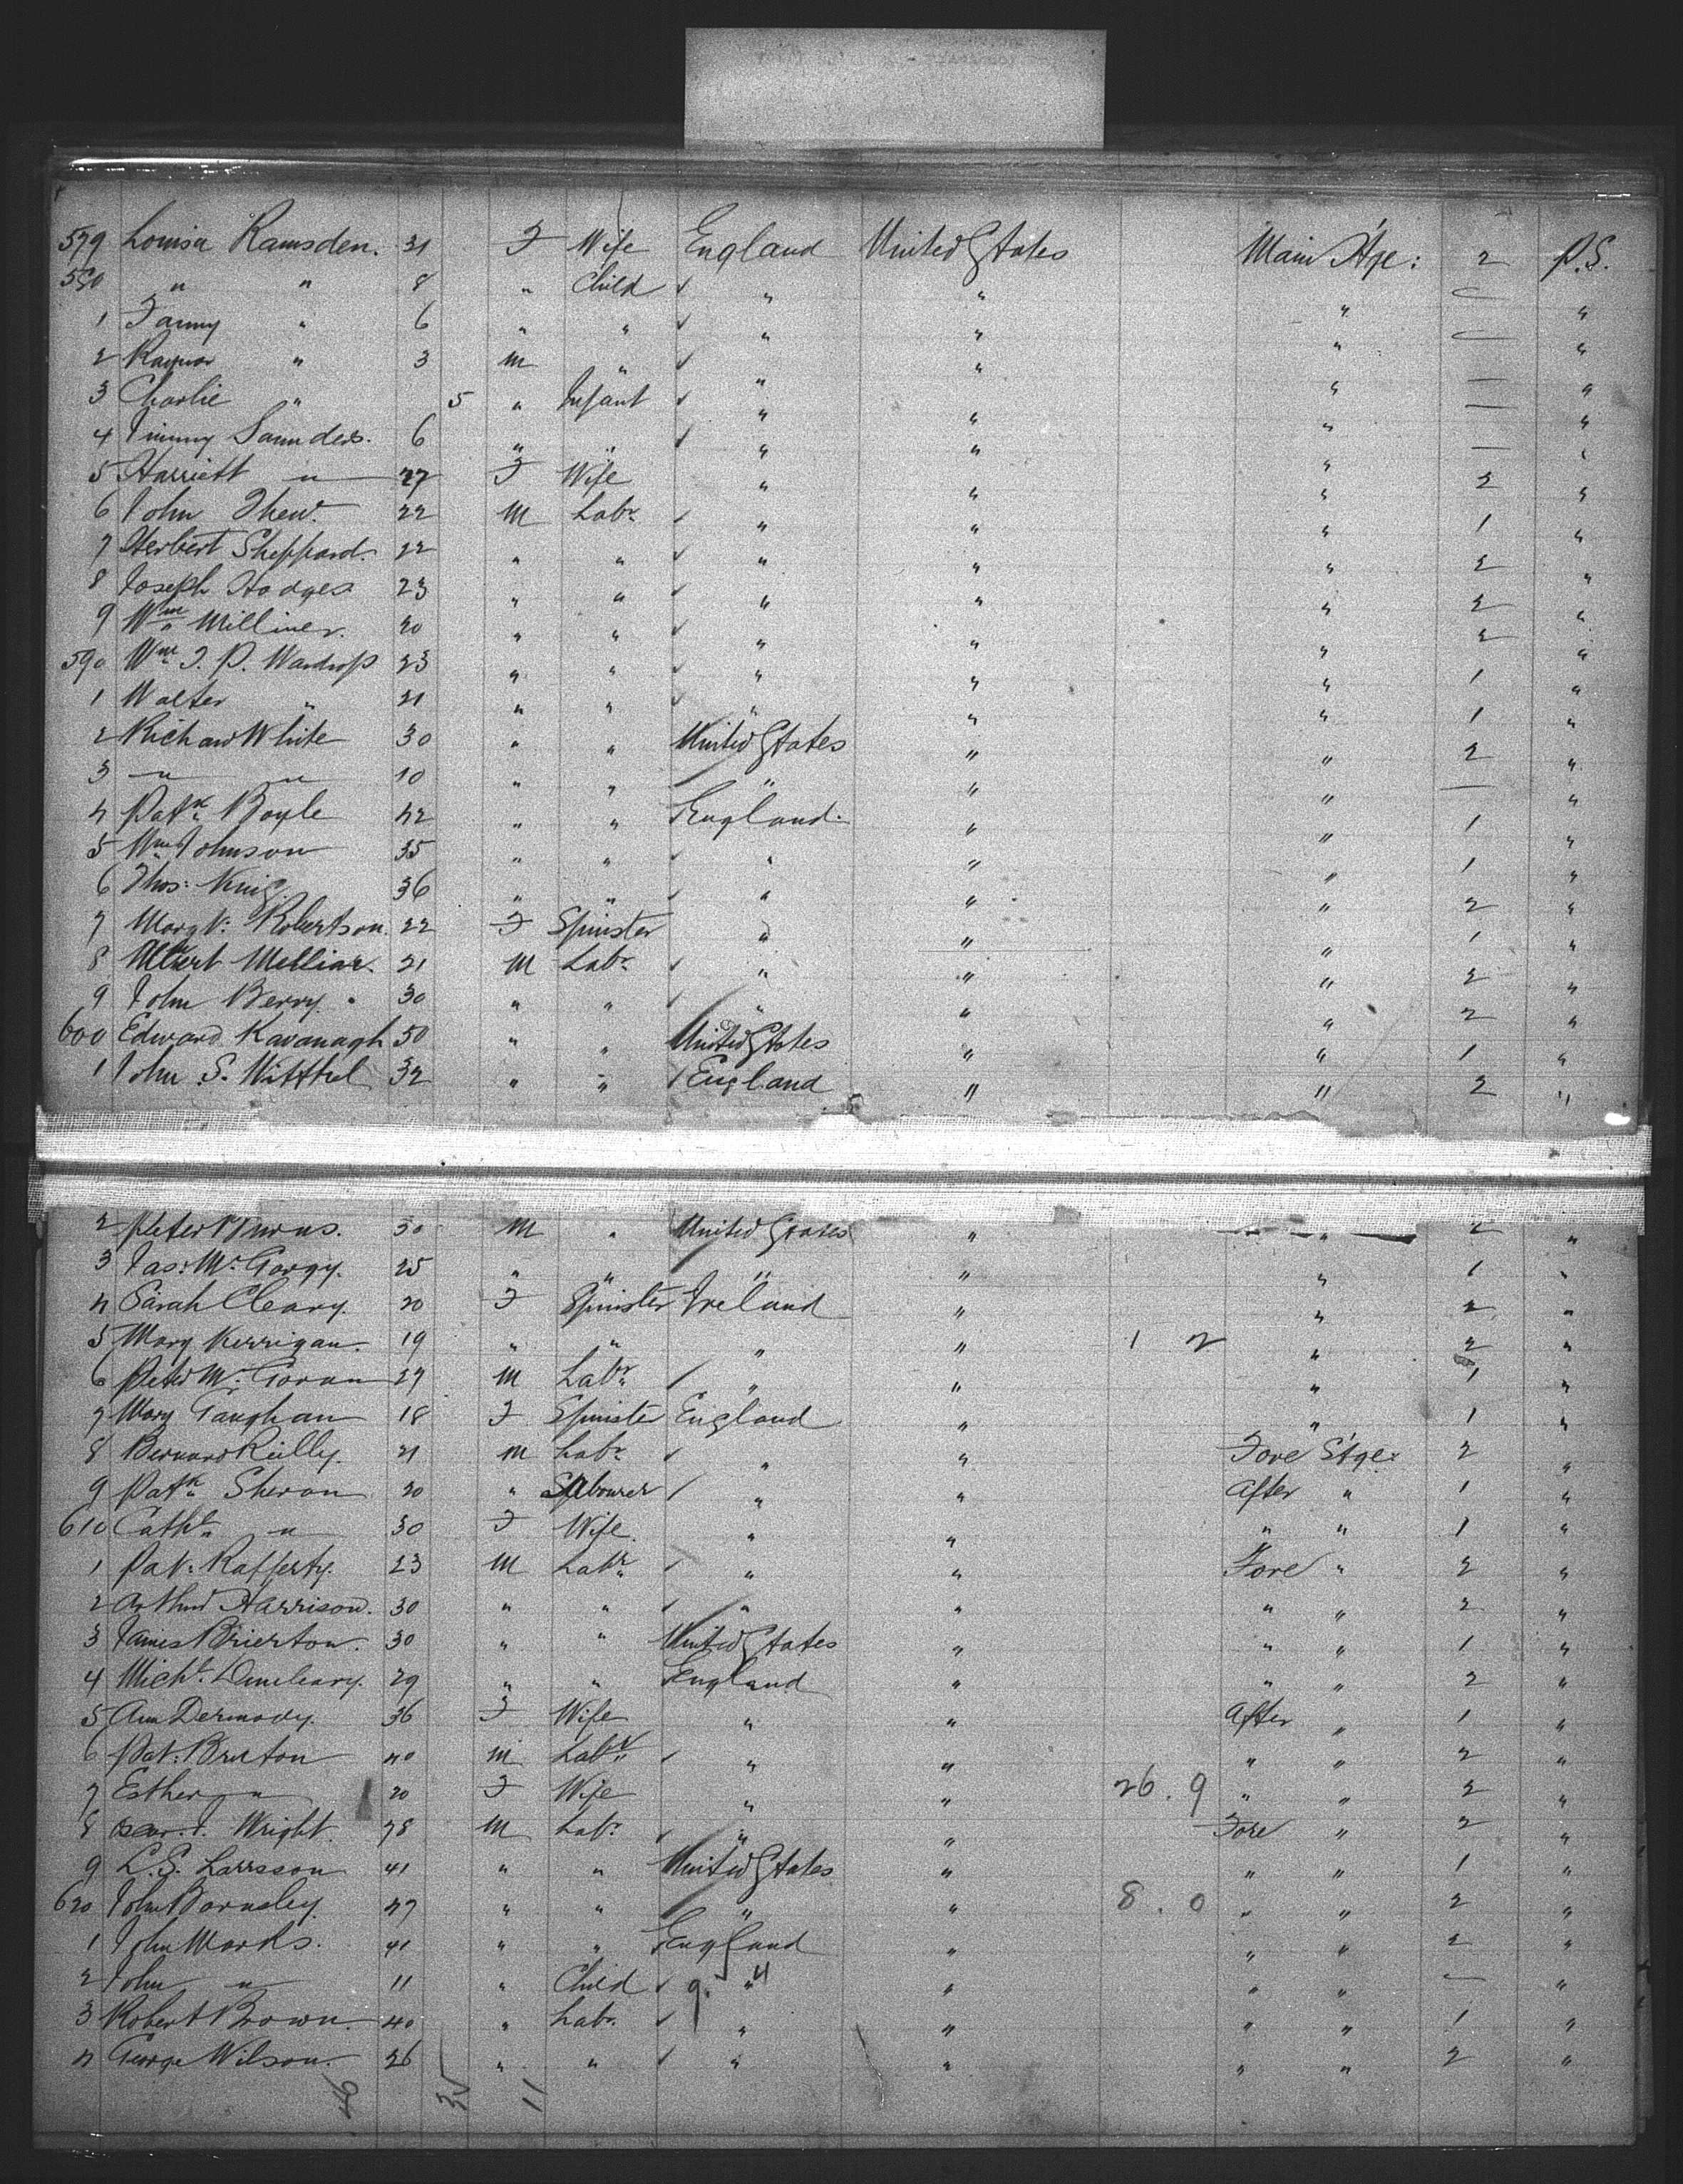 579 Louisa Ramsden. 31 F Wife England United States Main St'ge: 2 P.S.
580 " " 8 " Child ✓ " " " — "
1 Fanny " 6 " " ✓ " " " — "
2 " 3 M " ✓ " " " — "
3 Charlie " 5 " Infant ✓ " " " — "
4 Jimmy Saunders. 6 " " ✓ " " " — "
5 Harriett " 27 F Wife " " " 2 "
6 John Thew. 22 M Labr. ✓ " " " 1 "
7 Herbert Sheppard. 22 " " ✓ " " " 2 "
8 Joseph Hodges 23 " " ✓ " " " 2 "
9 Wm Milliner. 20 " " ✓ " " " 2 "
590 Wm J. P. Wardrop 23 " " ✓ " " " 1 "
1 Walter " 21 " " ✓ " " " 1 "
2 Richard White 30 " " United States " " 2 "
3 " " 10 " " " " " — "
4 Patk. Boyle 42 " " England. " " 1 "
5 Wm Johnson 35 " " ✓ " " " 1 "
6 Thos: King 36 " " ✓ " " " 2 "
7 Margt: Robertson. 22 F Spinster " " " 1 "
8 Albert 21 M Labr. ✓ " " " 2 "
9 John Berry. 30 " " ✓ " " " 2 "
600 Edward Kavanagh 50 " " United States " " 1 "
1 John S. 32 " " ✓ England " " 2 "
2 Peter Burns. 30 M " United States " " 2 "
3 Jas: Mc 25 " " " " " 1 "
4 Sarah Cleary. 20 F Spinster Ireland " " 2 "
5 Mary Kerrigan. 19 " " " " 1 2 " 2 "
6 Peter Mc. 27 M Labr. ✓ " " " 1 "
7 Mary Gaughan 18 F Spinster England " " 1 "
8 Bernard Reilly. 21 M Labr. ✓ " " Fore St'ge: 2 "
9 Patk. Sheron 20 " Labourer ✓ " " After " 1 "
610 Cathe. " 30 F Wife " " " " 1 "
1 Pat: Rafferty. 23 M Labr. ✓ " " Fore " 2 "
2 Arthur Harrison. 30 " " ✓ " " " " 2 "
3 James Brierton. 30 " " United States " " " 1 "
4 Michl. Dunleavy. 29 " " England " " " 2 "
5 Ann Dermody. 36 F Wife " " After " 1 "
6 Pat: 40 M Labr. ✓ " " " " 2 "
7 Esther " 20 F Wife " " 26.9 " " 2 "
8 Wright. 28 M Labr. ✓ " " Fore " 2 "
9 L. S. Larsson 41 " " United States " " " 1 "
620 John Barnsley. 47 " " " " 8.0 " " 2 "
1 John Marks. 41 " " England " " " 2 "
2 John " 11 " Child ✓ 9. " 4 " " " — "
3 Robert Brown. 40 " Labr. ✓ " " " " 1 "
4 George Wilson. 26 " " ✓ " " " " 2 "
35 11